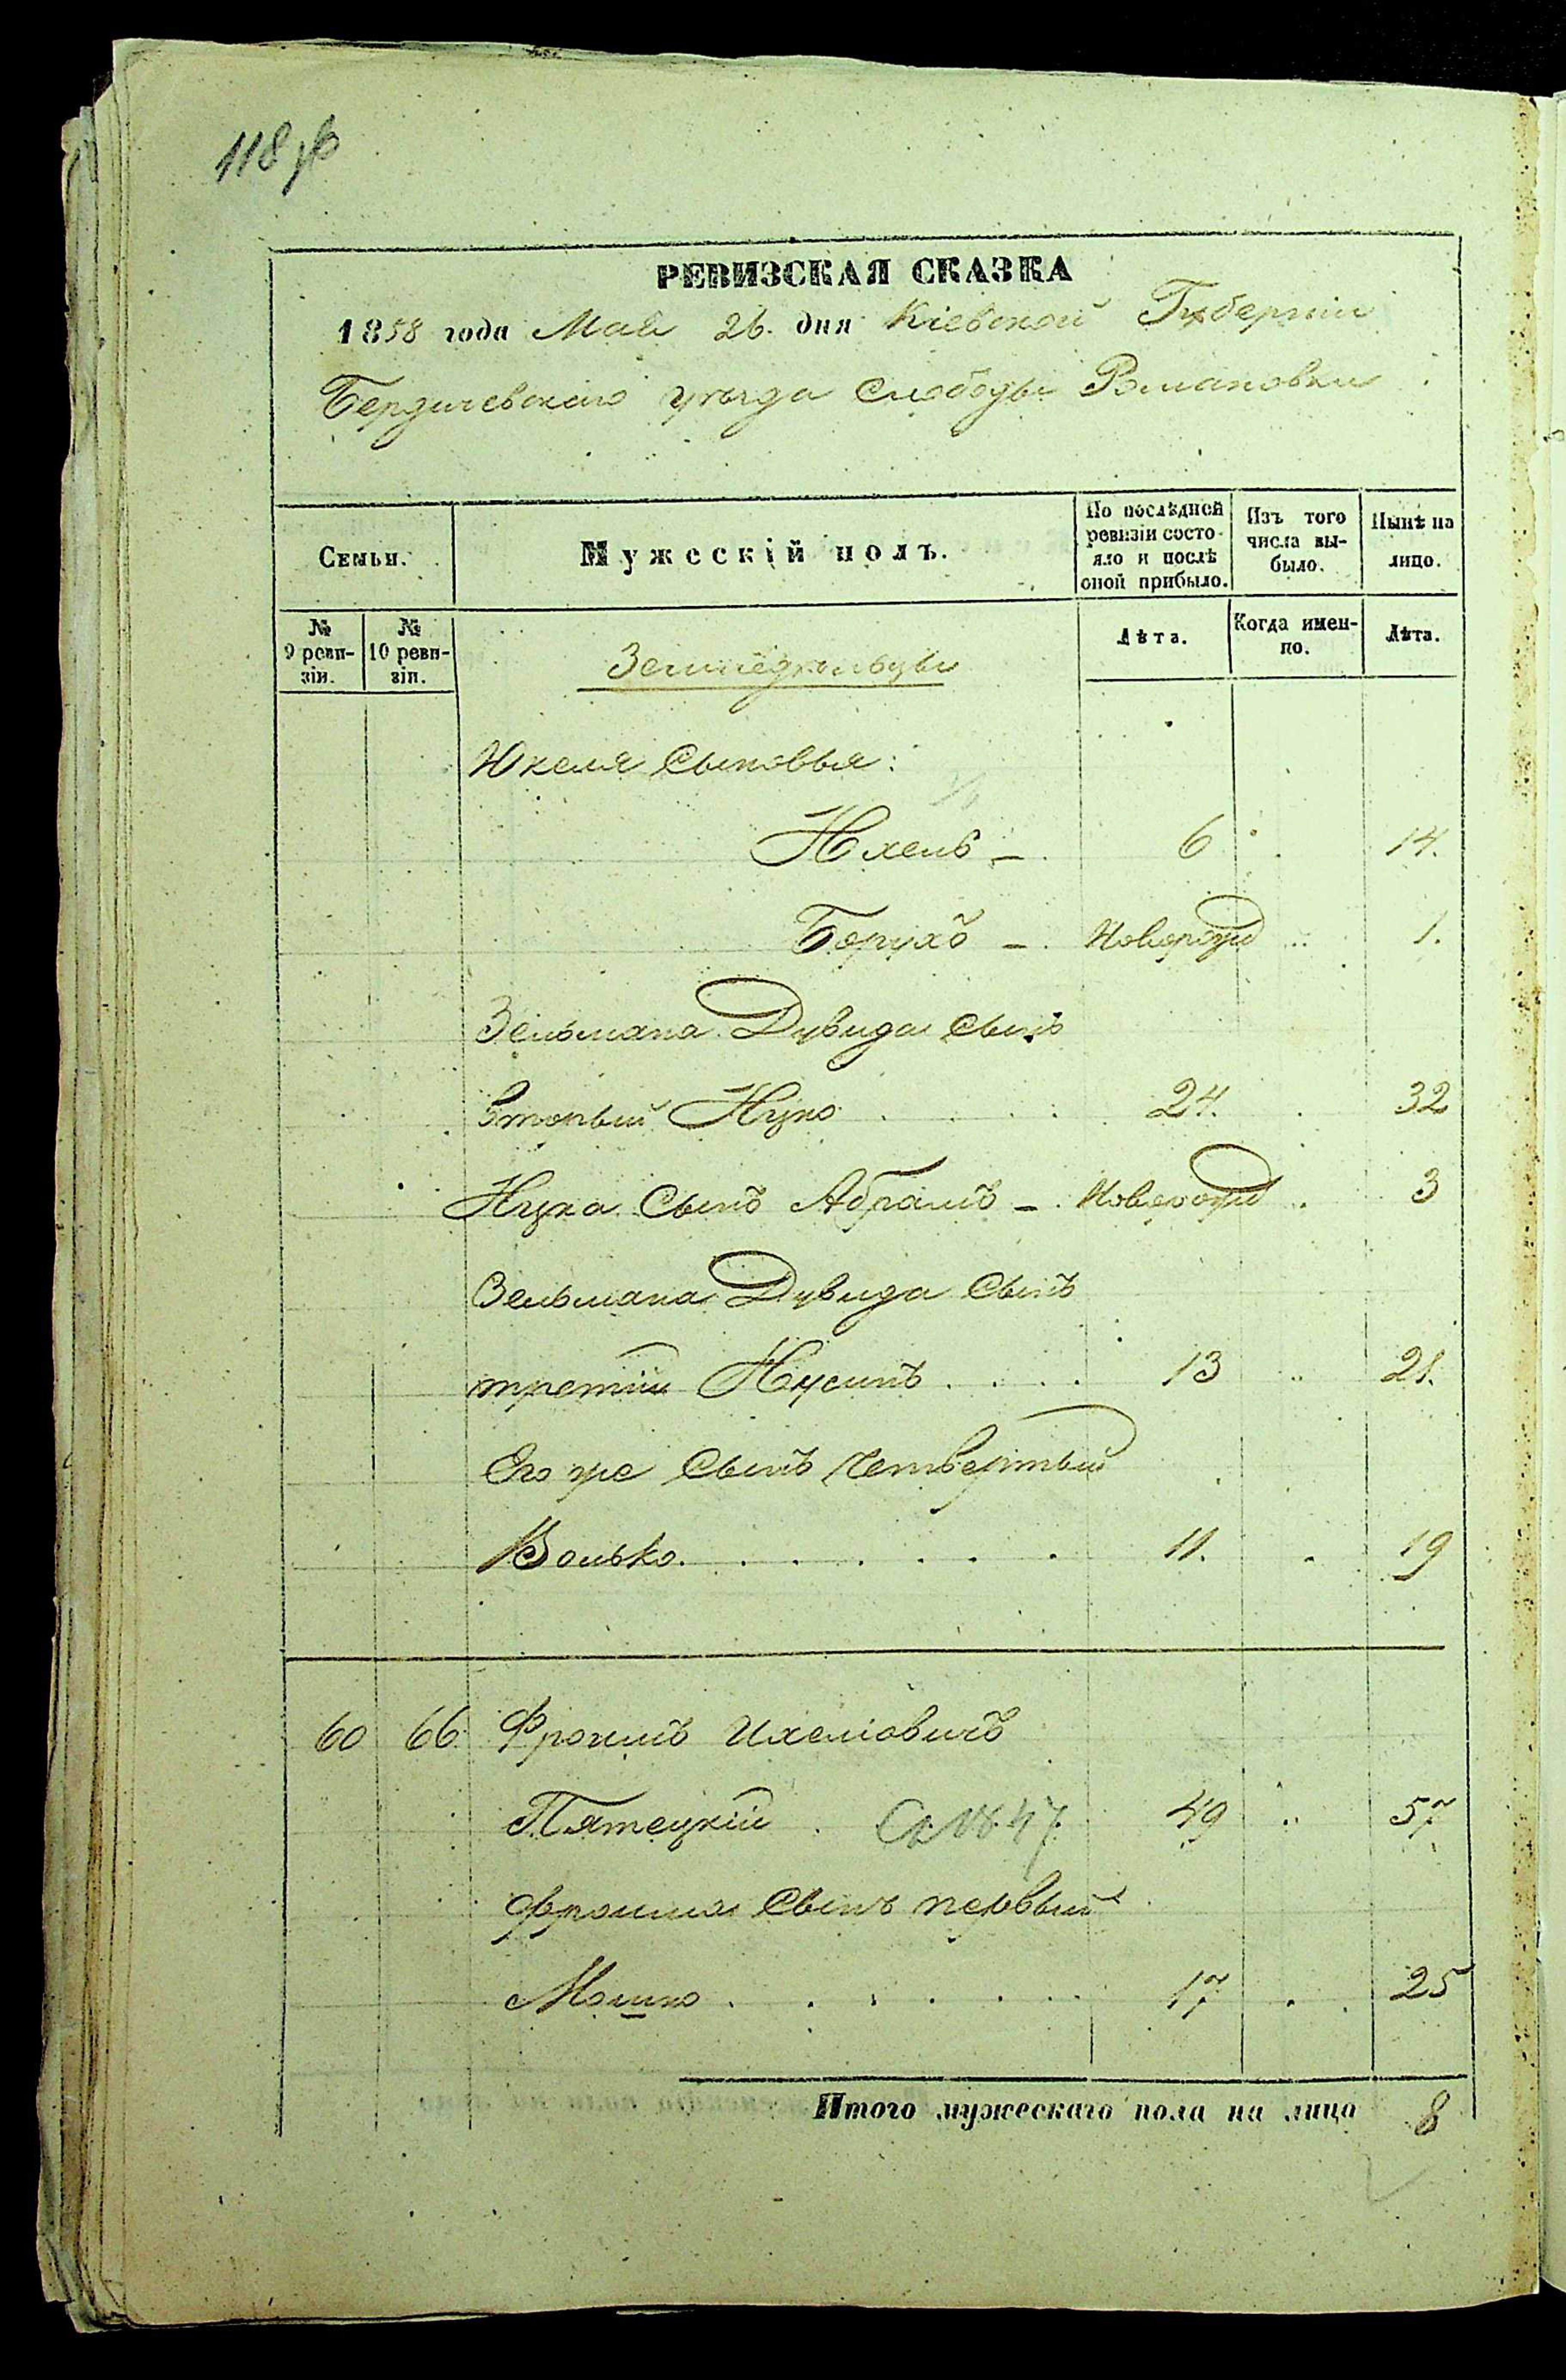 118 об
РЕВИЗСКАЯ СКАЗКА
1858 года Мая 26. дня Кіевской Губерніи
Бердичевскаго уѣзда Слободы Романовки
Семьи.
Мужескій полъ.
По послѣдней ревизіи состояло и послѣ оной прибыло.
Изъ того числа выбыло.
Нынѣ на лицо.
№ 9 ревизіи.
№ 10 ревизіи.
Земледѣльцы
Лѣта.
Когда именно.
Лѣта.
Юкеля Сыновья:
6 14.
Борухъ — Новорожд 1.
Зельмана Дувида сынъ
вторый Нухо 24. 32
Сынъ Абрамъ — Новорожд 3
Зельмана Дувида Сынъ
третій Нусинъ 13 21.
Его же Сынъ Четвертый
Волько. 11. 19
60 66 Фроимъ Ихеліовичъ
Пятецкій 49 57
Фроима Сынъ первый
Мошко 17 25
Итого мужескаго пола на лицо 8